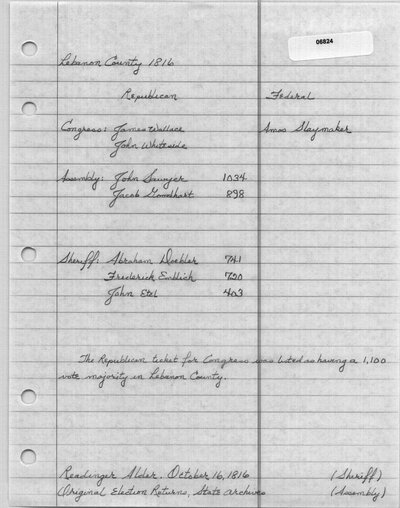 06824
Lebanon County 1816
Republican Federal
Congress: James Wallace Amos Slaymaker
John Whiteside
Assembly: John Sawyer 1034
Jacob Goodhart 898
Sheriff: Abraham Doebler 741
Frederick Embich 720
John Etel 403
The Republican ticket for Congress was listed as having a 1,100
vote majority in Lebanon County.
Readinger Adler. October 16, 1816 (Sheriff)
Original Election Returns, State archives (Assembly)